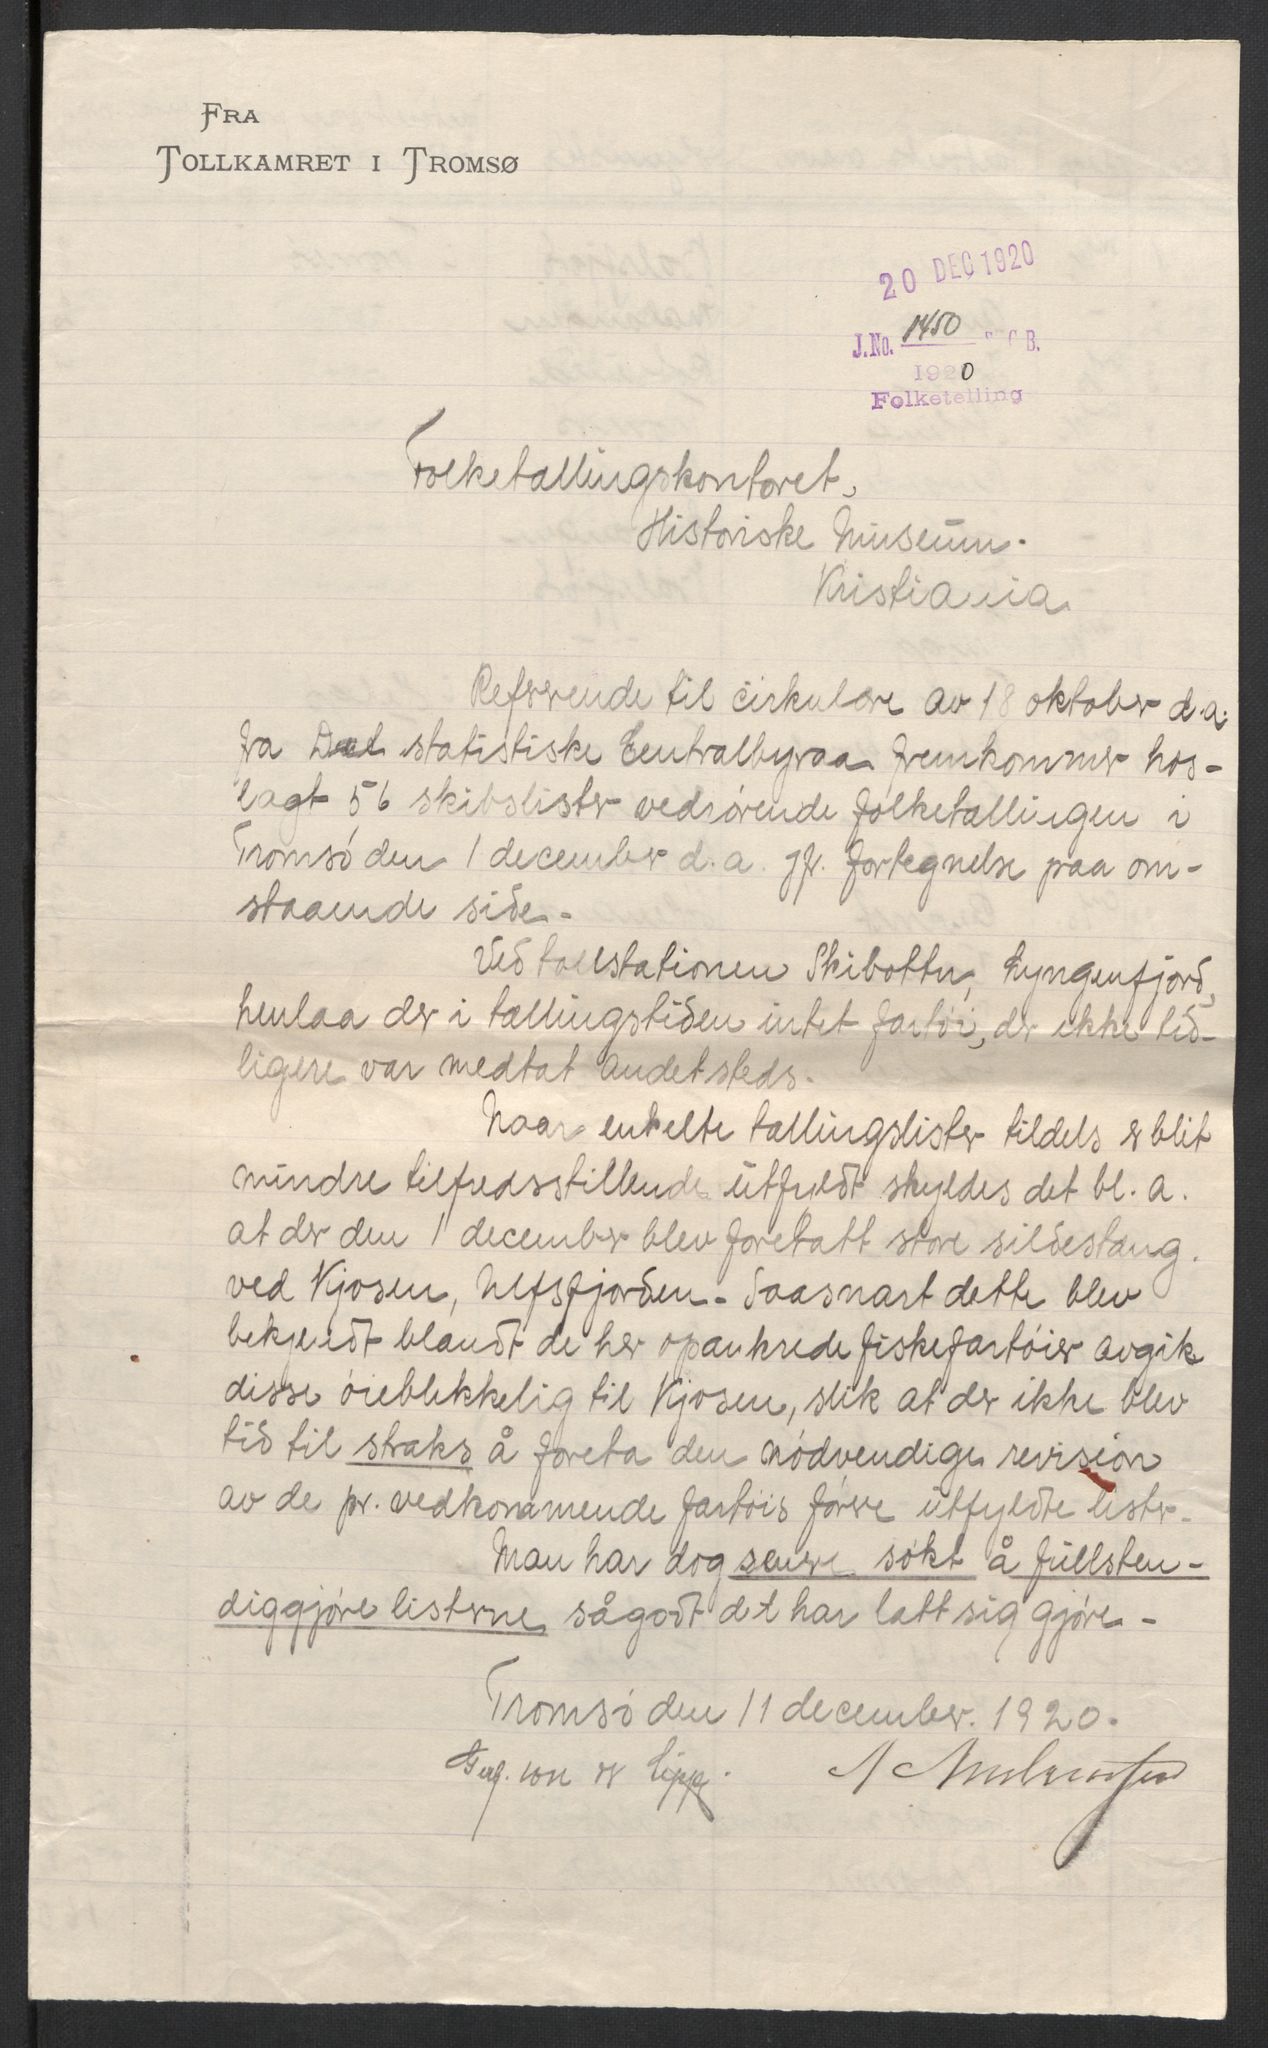 FRA
TOLLKAMRET I TROMSØ
20 DEC 1920
J.No. 1450 S.C.B.
1920
Folketelling
Folketællingskontoret,
Historiske Museum.
Kristiania
Refererende til cirkulære av 18 oktober d.a.
fra Det statistiske Centralbyraa fremkommer hos-
lagt 56 skibslister vedrørende folketællingen i
Tromsø den 1 december d.a. jfr. fortegnelse paa om-
staaende side.
Ved tollstationen Skibotten, Lyngenfjord,
henlaa der i tællingstiden intet fartøi, der ikke tid-
ligere var medtat andetsteds.
Naar enkelte tællingslister tildels er blit
mindre tilfredsstillende utfyldt skyldes det bl. a.
at der den 1 december blev foretatt store sildestæng.
ved Kjosen, Ulfsfjorden. Saasnart dette blev
bekjendt blandt de her opankrede fiskefartøier avgik
disse øieblikkelig til Kjosen, slik at der ikke blev
tid til straks å foreta den nødvendige revision
av de pr. vedkommende fartøis fører utfyldte lister.
Man har dog senere søkt å fullsten-
diggjøre listerne sågodt det har latt sig gjøre.
Tromsø den 11 december. 1920.